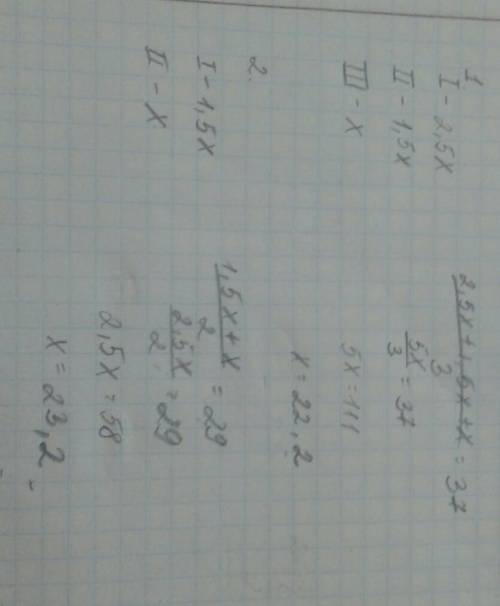 1
I - 2,5x
II - 1,5x
III - x
(2,5x+1,5x+x)/3 = 37
5x/3 = 37
5x = 111
x = 22,2
2.
I - 1,5x
II - x
(1,5x+x)/2 = 29
2,5x/2 = 29
2,5x = 58
x = 23,2